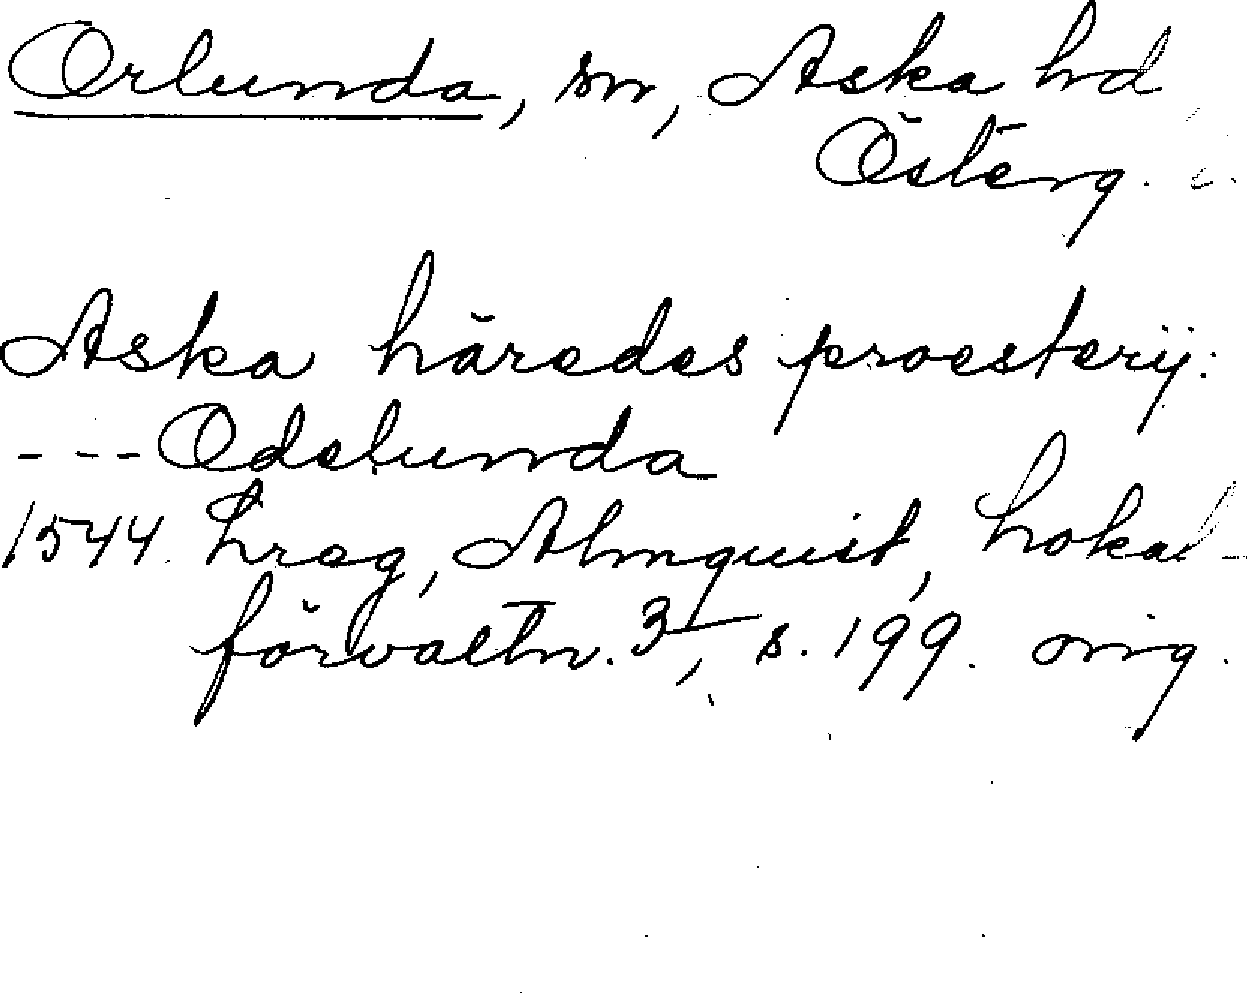 Orlunda, sn, Aska hd
Österg.
Aska häredes proesterij:
--- Odelunda
1544. Lreg, Almquist, Lokal-
förvaltn. 3, s. 199. orig.